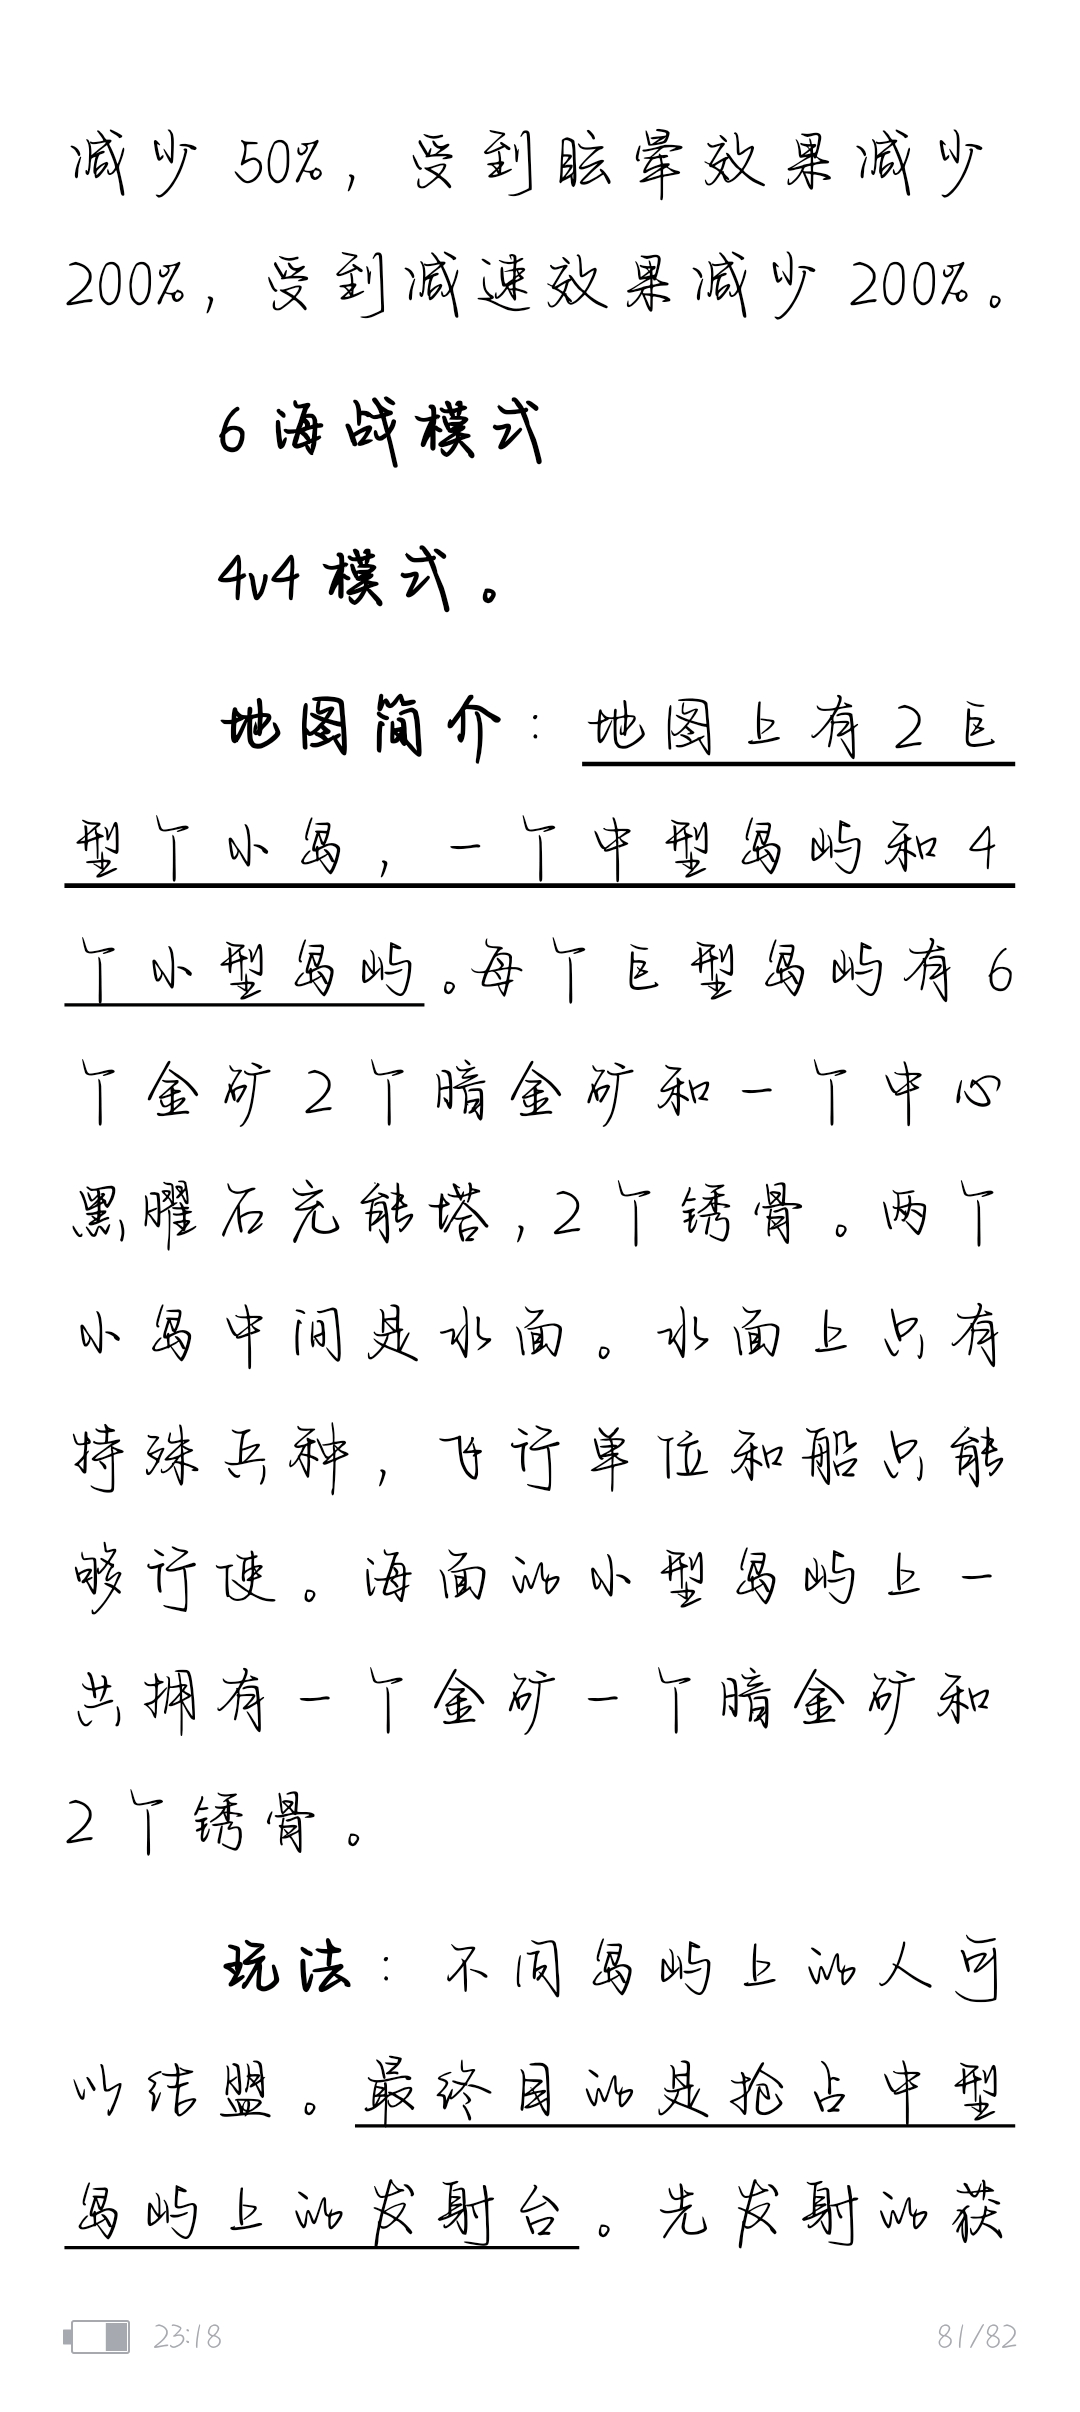 减少 50%, 受到眩晕效果减少
200%, 受到减速效果减少 200%。
6 海战模式
4v4 模式。
地图简介: 地图上有 2 巨
型个小岛, 一个中型岛屿和 4
个小型岛屿。每个巨型岛屿有 6
个金矿 2 个暗金矿和一个中心
黑曜石充能塔, 2 个锈骨。两个
小岛中间是水面。水面上只有
特殊兵种, 飞行单位和船只能
够行使。海面的小型岛屿上一
共拥有一个金矿一个暗金矿和
2 个锈骨。
玩法: 不同岛屿上的人可
以结盟。最终目的是抢占中型
岛屿上的发射台。先发射的获
23:18
81/82